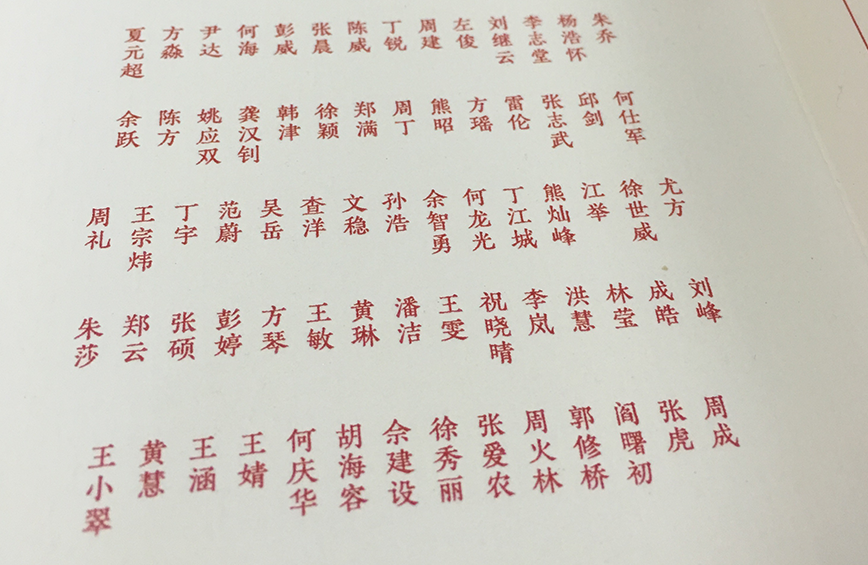 夏元超 方淼 尹达 何海 彭威 张晨 陈威 丁锐 周建 左俊 刘继云 李志堂 杨浩怀 朱乔
余跃 陈方 姚应双 龚汉钊 韩津 徐颖 郑满 周丁 熊昭 方瑶 雷伦 张志武 邱剑 何仕军
周礼 王宗炜 丁宇 范蔚 吴岳 查洋 文稳 孙浩 余智勇 何龙光 丁江城 熊灿峰 江举 徐世威 尤方
朱莎 郑云 张硕 彭婷 方琴 王敏 黄琳 潘洁 王雯 祝晓晴 李岚 洪慧 林莹 成皓 刘峰
王小翠 黄慧 王涵 王婧 何庆华 胡海容 佘建设 徐秀丽 张爱农 周火林 郭修桥 阎曙初 张虎 周成